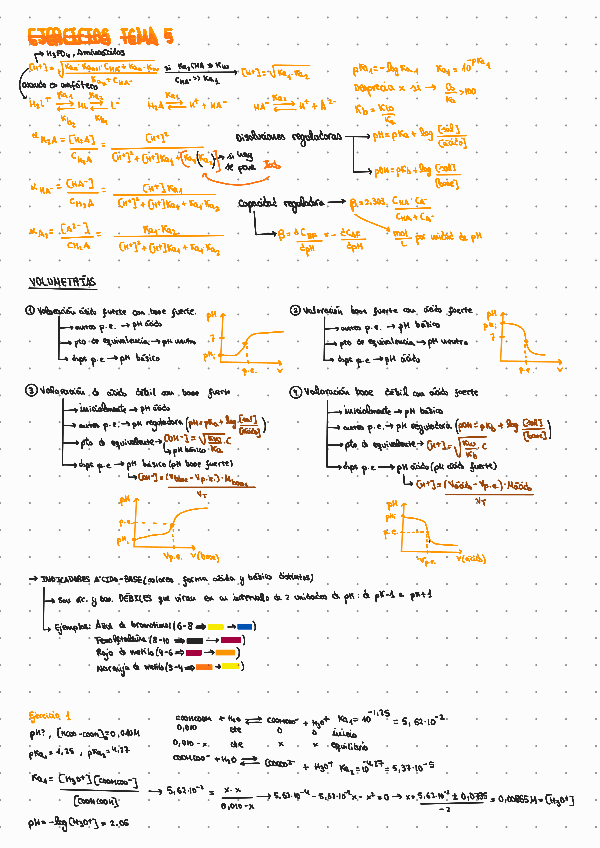 EJERCICIOS TEMA 5
→ H₃PO₄, Aminoácidos
[H⁺] = √(Ka₁·Ka₂·C_HA⁻ + Ka₁·Kw / Ka₁ + C_HA⁻) si Ka₂·CHA >> Kw, CHA >> Ka₁ → [H⁺] = √(Ka₁·Ka₂)
pKa₁ = -log Ka₁ Ka₁ = 10^-pKa₁
cuando es anfótero
Desprecia x si → Ca/Ka > 100
H₂A ⇌ H⁺ + HA⁻ HA⁻ ⇌ H⁺ + A²⁻
Kb = Kw/Ka
α H₂A = [H₂A]/C H₂A = [H⁺]²/([H⁺]² + [H⁺]Ka₁ + Ka₁Ka₂) → si hay
Disoluciones reguladoras → pH = pKa + log [sal]/[ácido]
→ pOH = pKb + log [sal]/[base]
α HA⁻ = [HA⁻]/C H₂A = [H⁺]Ka₁/([H⁺]² + [H⁺]Ka₁ + Ka₁·Ka₂)
Capacidad reguladora → β = 2,303 · C HA · C A⁻/(C HA + C A⁻)
α A²⁻ = [A²⁻]/C H₂A = Ka₁·Ka₂/([H⁺]² + [H⁺]Ka₁ + Ka₁·Ka₂)
mol/L por unidad de pH
VOLUMETRÍAS
① Valoración ácido fuerte con base fuerte.
→ antes p.e. → pH ácido
→ pto de equivalencia → pH neutro
→ dsps p.e → pH básico
pH
7
pHi
p.e.
V
② Valoración base fuerte con ácido fuerte
→ antes p.e. → pH básico
→ pto de equivalencia → pH neutro
→ dsps p.e → pH ácido
pH
pHi
7
p.e.
V
③ Valoración de ácido débil con base fuerte
→ inicialmente → pH ácido
→ antes p.e. → pH reguladora (pH = pKa + log [sal]/[ácido])
→ pto de equivalente → [OH⁻] = √(Kw/Ka · C)
→ pH básico
→ dsps p.e → pH básico (pH base fuerte)
→ [OH⁻] = (Vbase - Vp.e.)·Mbase/V_T
pH
p.e.
pHi
Vp.e.
V(base)
④ Valoración base débil con ácido fuerte
→ inicialmente → pH básico
→ antes p.e. → pH reguladora (pOH = pKb + log [sal]/[base])
→ pto de equivalente → [H⁺] = √(Kw/Kb · C)
→ dsps p.e → pH ácido (pH fuerte)
→ [H⁺] = (Vácido - Vp.e.)·Mácido/V_T
pH
pHi
p.e.
Vp.e.
V(ácido)
→ INDICADORES ÁCIDO-BASE (colores forma ácida y básica distintos)
→ Son ác. y bas. DÉBILES que viran en un intervalo de 2 unidades de pH: de pK-1 a pK+1
→ Ejemplos: Azul de bromotimol (6-8 ⇒ → )
Fenolftaleína (8-10 ⇒ → )
Rojo de metilo (4-6 ⇒ → )
Naranja de metilo (3-4 ⇒ → )
Ejercicio 1
COOHCOOH + H₂O ⇌ COOHCOO⁻ + H₃O⁺ Ka₁ = 10^-1,25 = 5,62·10⁻²
pH?, [HCOO-COOH] = 0,010M
0,010 cte 0 0 inicio
pKa₁ = 1,25, pKa₂ = 4,27
0,010-x cte x x equilibrio
COOHCOO⁻ + H₂O ⇌ COOCOO²⁻ + H₃O⁺ Ka₂ = 10^-4,27 = 5,37·10⁻⁵
Ka₁ = [H₃O⁺][COOHCOO⁻]/[COOHCOOH] → 5,62·10⁻² = x·x/(0,010-x) → 5,62·10⁻⁴ - 5,62·10⁻²x - x² = 0 → x = (5,62·10⁻² ± 0,0735)/-2 = 0,00865M = [H₃O⁺]
pH = -log[H₃O⁺] = 2,06